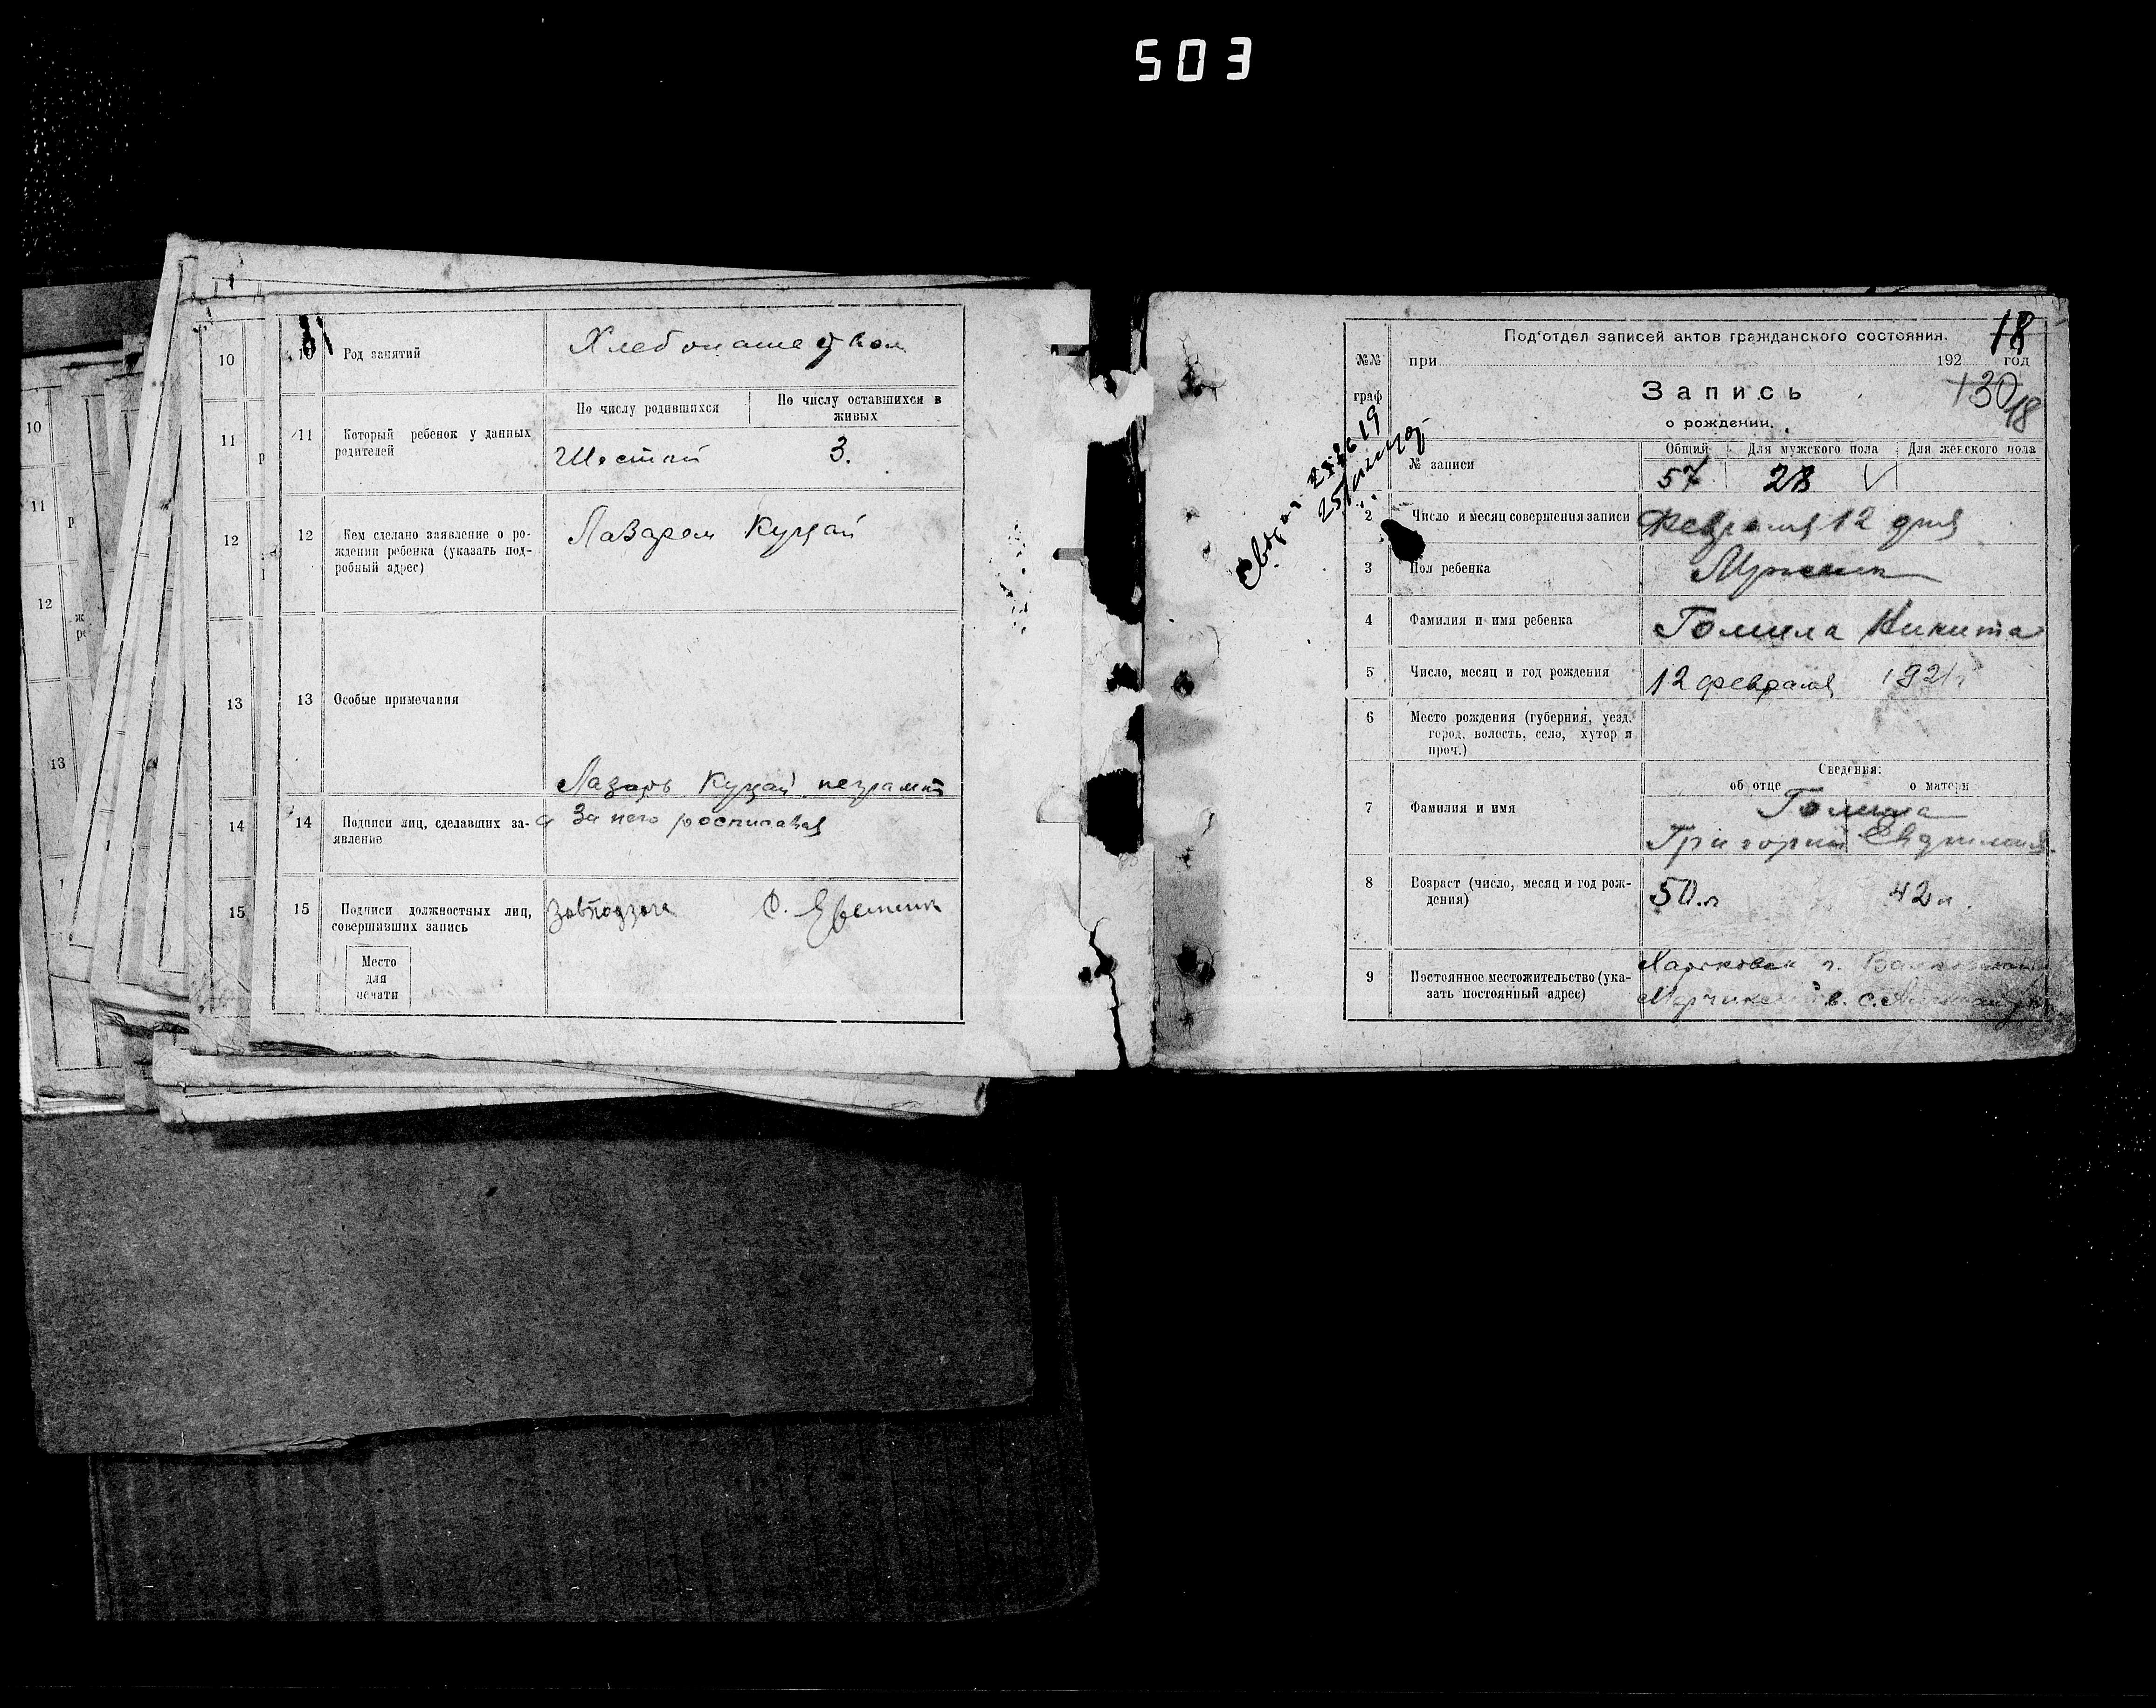 503
10
11
12
13
14
15
10
11
12
13
10 Род занятий Хлебопашество
11 Который ребенок у данных родителей
По числу родившихся По числу оставшихся в живых
Шестой 3.
12 Кем сделано заявление о ро-
ждении ребенка (указать под-
робный адрес)
Лазарем Куцай
13 Особые примечания
Лазарь Куцай неграмот
14 Подписи лиц, сделавших за-
явление
а За него росписался
15 Подписи должностных лиц,
совершивших запись
Завподзага
Место
для
печати
18
Под'отдел записей актов гражданского состояния.
№№ при 192 год
граф Запись 130 18
о рождении.
№ записи
Общий Для мужского пола Для женского пола
57 28
2 Число и месяц совершения записи Февраля 12 дня
3 Пол ребенка Мужеск
4 Фамилия и имя ребенка Гомила Никита
5 Число, месяц и год рождения 12 февраля 1921
6 Место рождения (губерния, уезд,
город, волость, село, хутор и
проч.)
Сведения:
об отце о матери
7 Фамилия и имя Гомила
Григорий Евдокия
8 Возраст (число, месяц и год рож-
дения)
50.л 42 л.
9 Постоянное местожительство (ука-
зать постоянный адрес)
Харьковск г.
в. с.